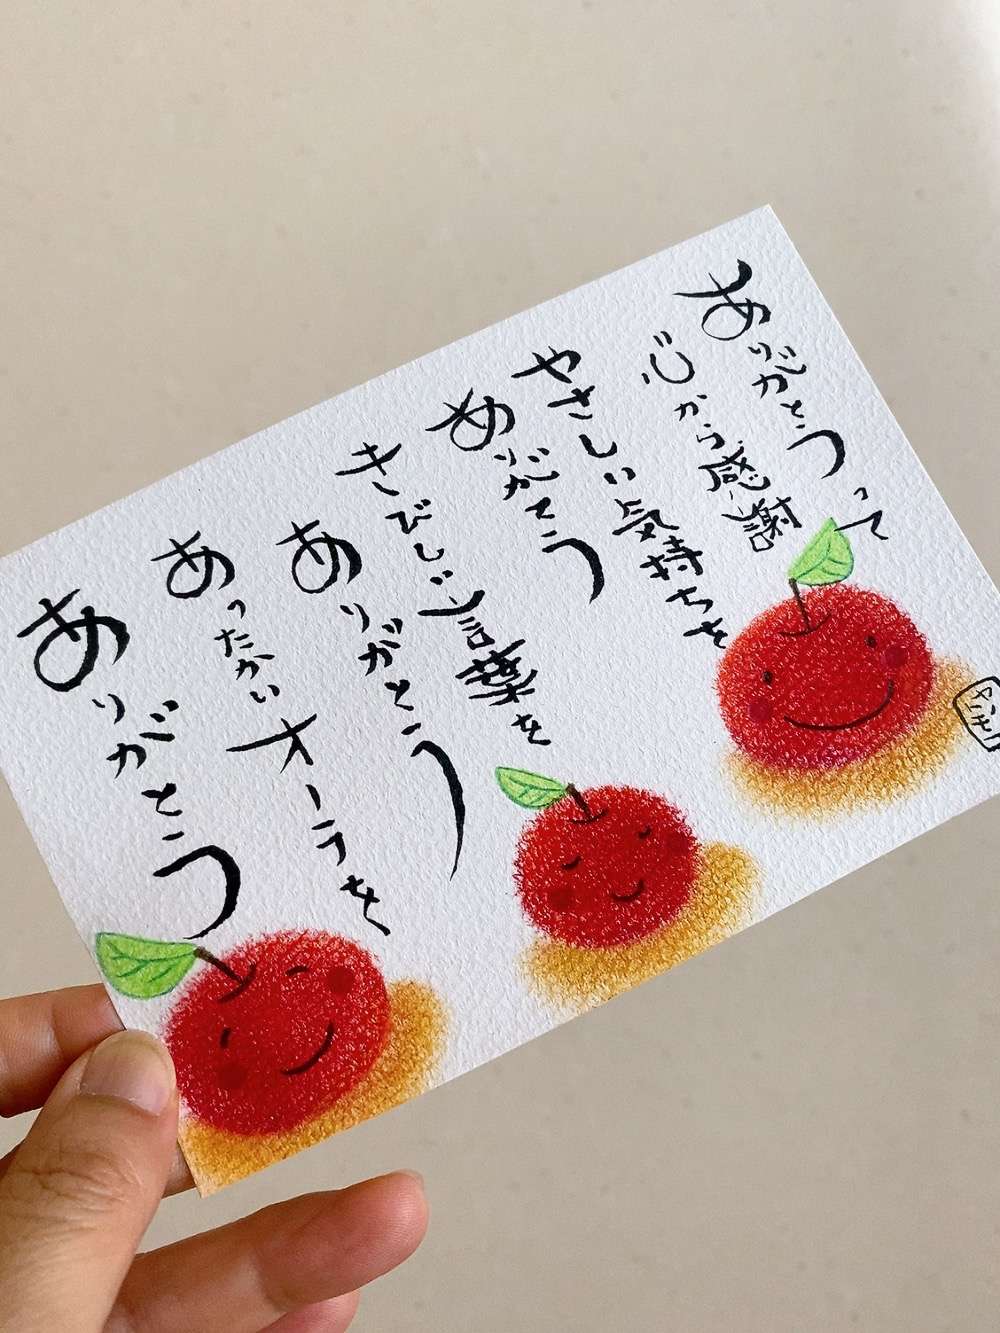 ありがとうって
心から感謝
やさしい気持ちを
ありがとう
きびしい言葉を
ありがとう
あったかいオーラを
ありがとう